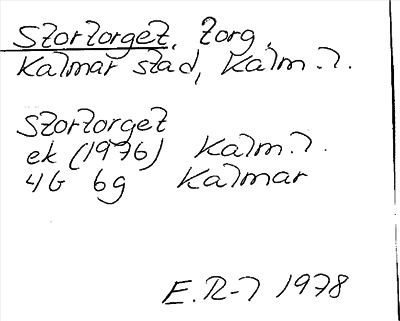 Stortorget, torg,
Kalmar stad, Kalm. l.
Stortorget
ek (1976) Kalm. l.
4G 6g Kalmar
E.R-l 1978